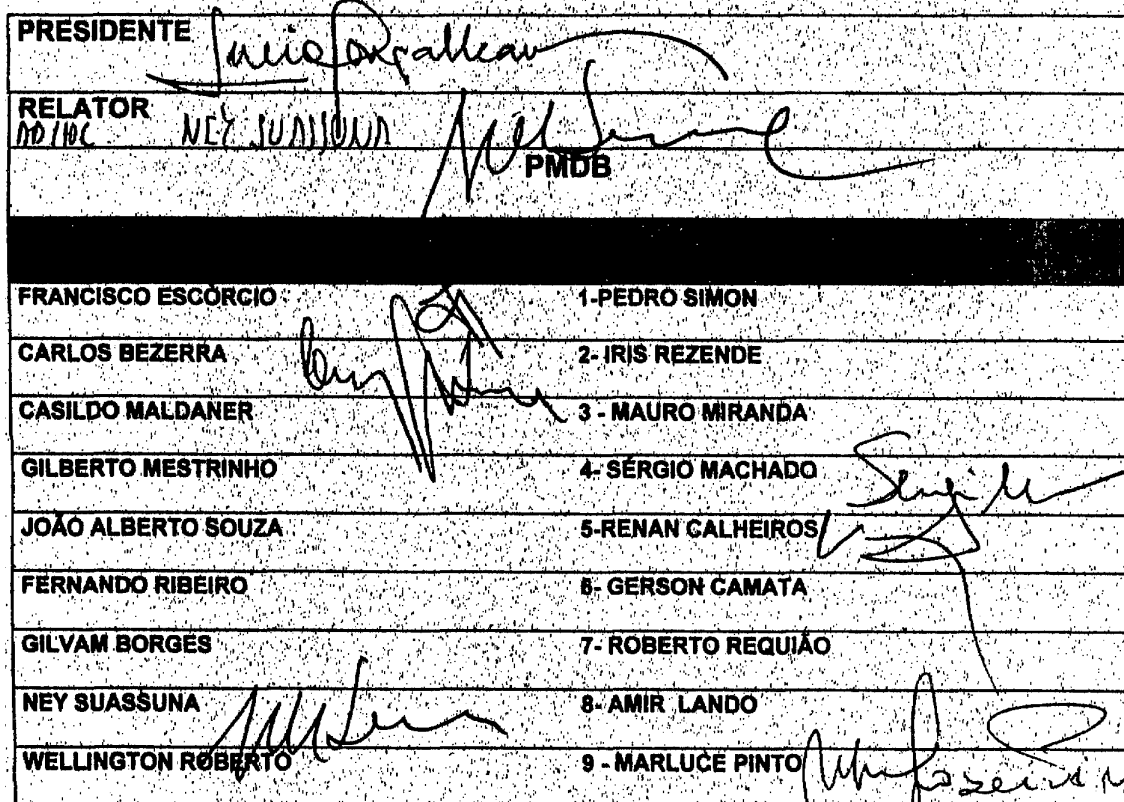 PRESIDENTE
RELATOR
AD HOC NEY SUASSUNA
PMDB
FRANCISCO ESCÓRCIO 1-PEDRO SIMON
CARLOS BEZERRA 2- IRIS REZENDE
CASILDO MALDANER 3 - MAURO MIRANDA
GILBERTO MESTRINHO 4- SÉRGIO MACHADO
JOÃO ALBERTO SOUZA 5-RENAN CALHEIROS
FERNANDO RIBEIRO 6- GERSON CAMATA
GILVAM BORGES 7- ROBERTO REQUIÃO
NEY SUASSUNA 8- AMIR LANDO
WELLINGTON ROBERTO 9 - MARLUCE PINTO